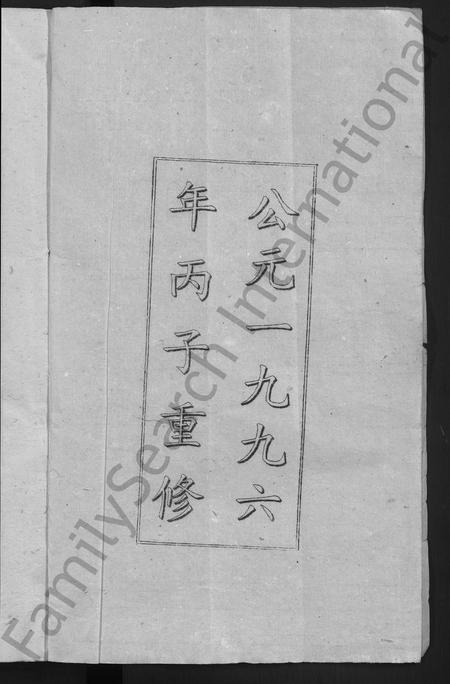 公元一九九六
年丙子重修
FamilySearch International